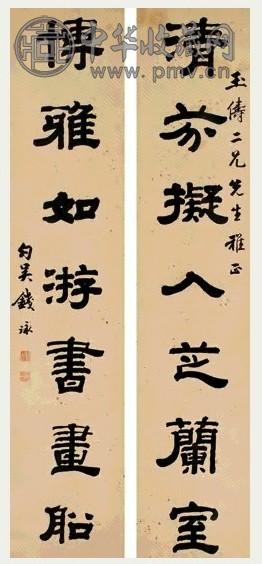 中华收藏网
www.pmv.cn
玉俦二兄先生雅正
清芬擬入芝蘭室
博雅如游書畫船
句吳錢泳